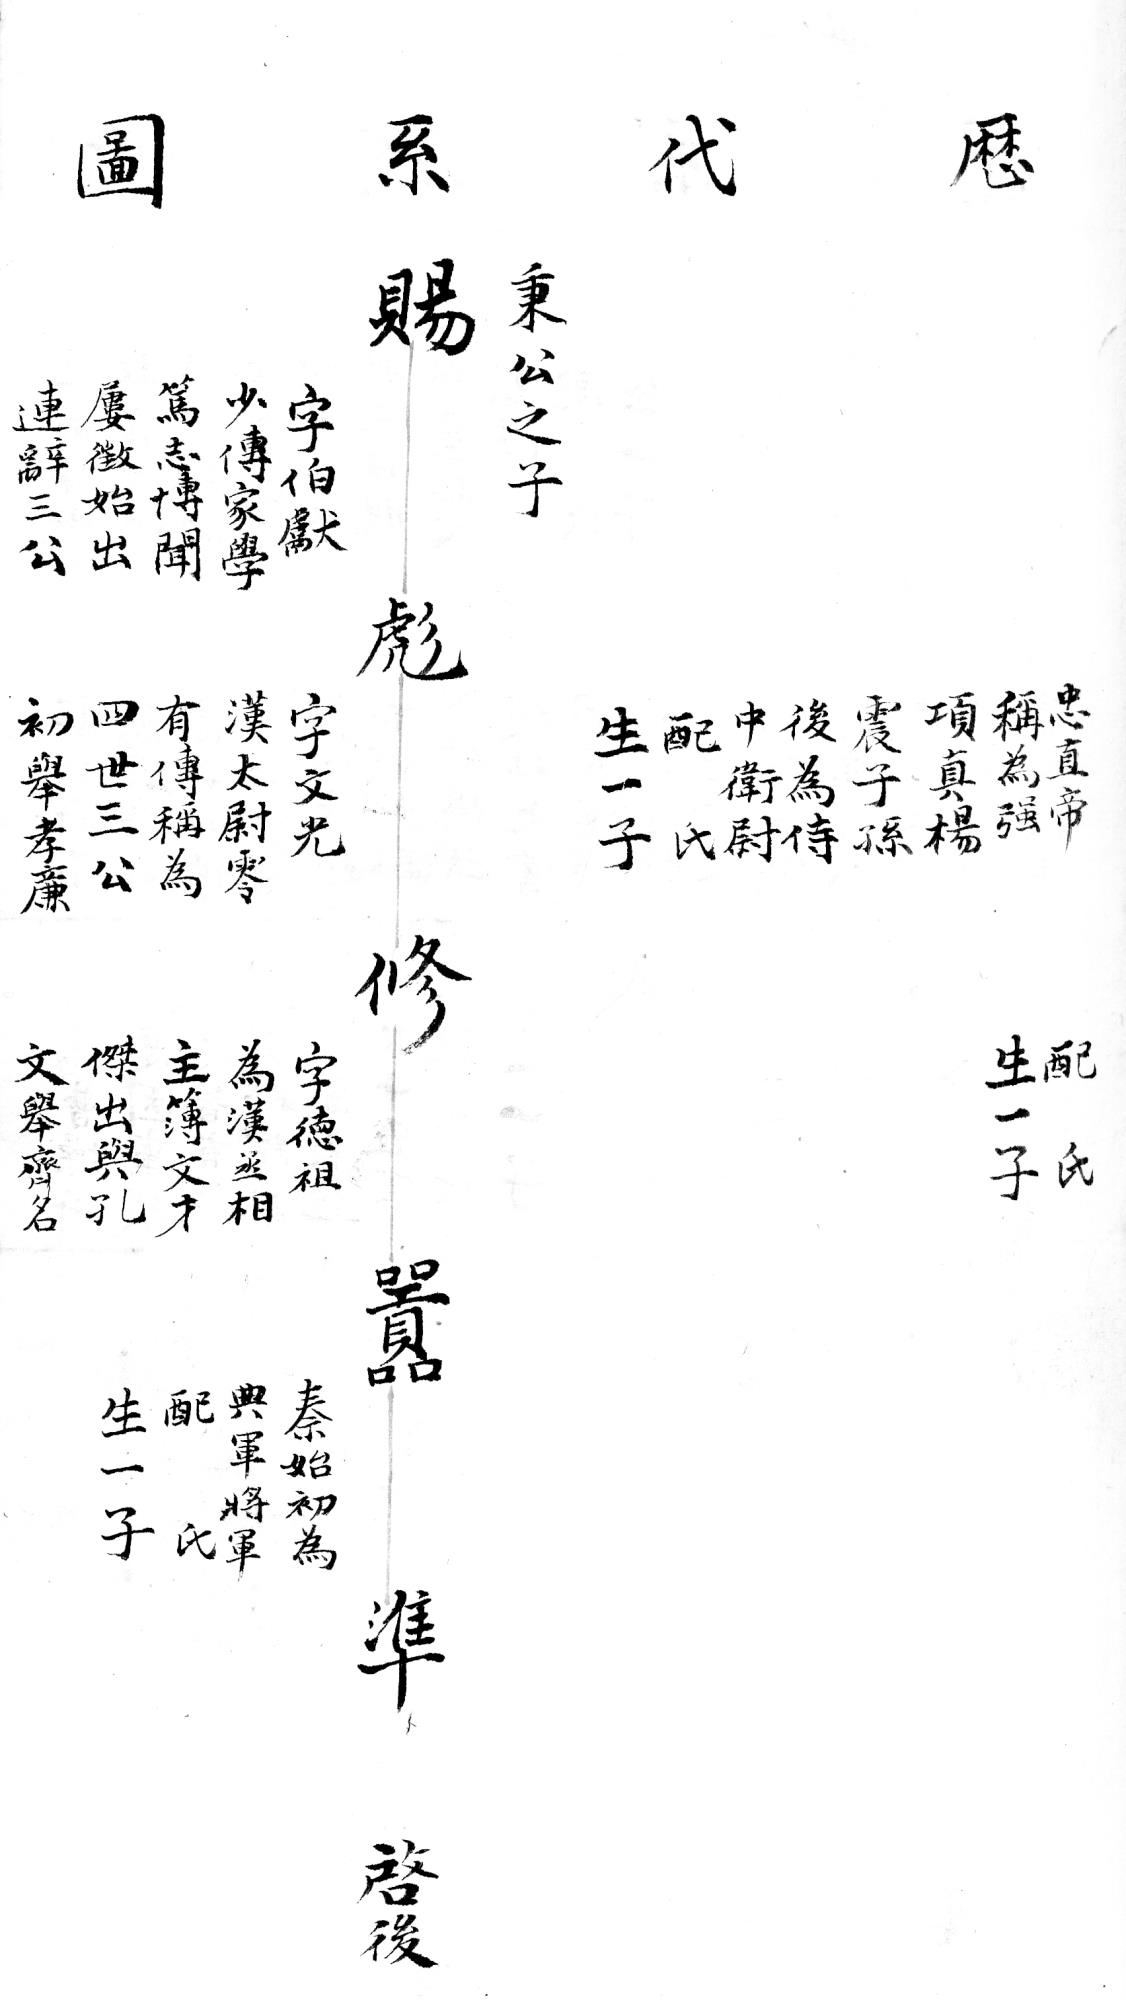 歷代系圖
忠直帝
稱為强
項真楊
震子孫
後為侍
中衛尉
配 氏
生一子
配 氏
生一子
秉公之子
賜
字伯獻
少傳家學
篤志博聞
屢徵始出
連辭三公
彪
字文光
漢太尉零
有傳稱為
四世三公
初舉孝廉
修
字德祖
為漢丞相
主簿文才
傑出與孔
文舉齊名
囂
秦始初為
典軍將軍
配 氏
生一子
準
啓後